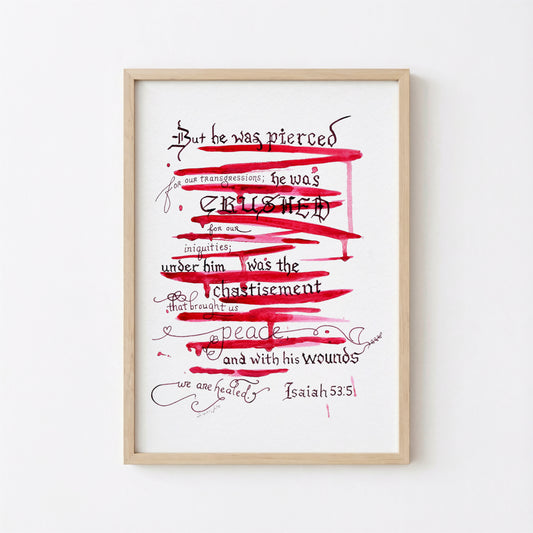 But he was pierced
for our transgressions; he was
CRUSHED
for our
iniquities;
under him was the
chastisement
that brought us
peace;
and with his wounds
we are healed.
Isaiah 53:5